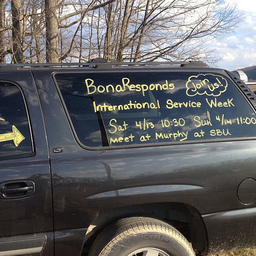 BonaResponds Join us!
International Service Week
Sat 4/13 10:30 Sun 4/14 11:00
meet at Murphy at SBU